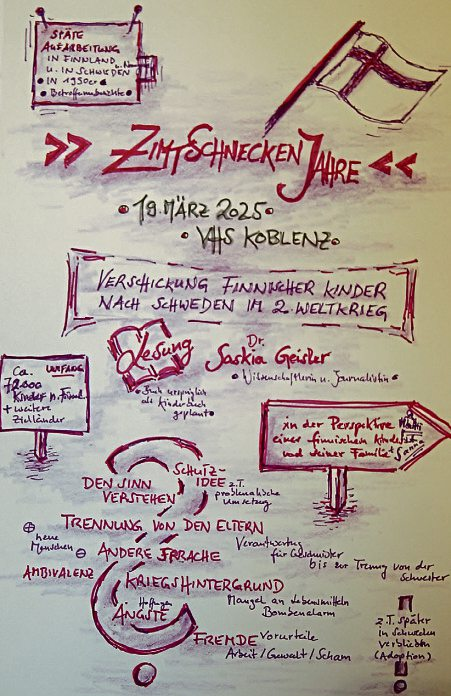 SPÄTE
AUFARBEITUNG
IN FINNLAND
U. IN SCHWEDEN
• IN 1950er
• Betroffenenberichte
>> ZIMTSCHNECKENJAHRE <<
• 19. MÄRZ 2025 •
• VHS KOBLENZ •
VERSCHICKUNG FINNISCHER KINDER
NACH SCHWEDEN IM 2. WELTKRIEG
Lesung
Dr.
Saskia Geisler
• Wissenschaftlerin u. Journalistin •
• Buch ursprünglich
als Kinderbuch
geplant •
UMFANG
Ca.
72.000
Kinder n.
+ weitere
Zielländer
in der Perspektive
einer finnischen Kindes
und seiner Familie
SCHUTZ-
IDEE z.T.
problematische
Umsetzung
DEN SINN
VERSTEHEN
TRENNUNG VON DEN ELTERN
⊕ neue
Menschen ⊖
ANDERE SPRACHE
Verantwortung
für Geschwister
bis zur Trennung von der
Schwester
AMBIVALENZ
KRIEGSHINTERGRUND
Mangel an Lebensmitteln
Bombenalarm
ÄNGSTE
FREMDE Vorurteile
Arbeit / Gewalt / Scham
z.T. später
in Schweden
verblieben
(Adoption)